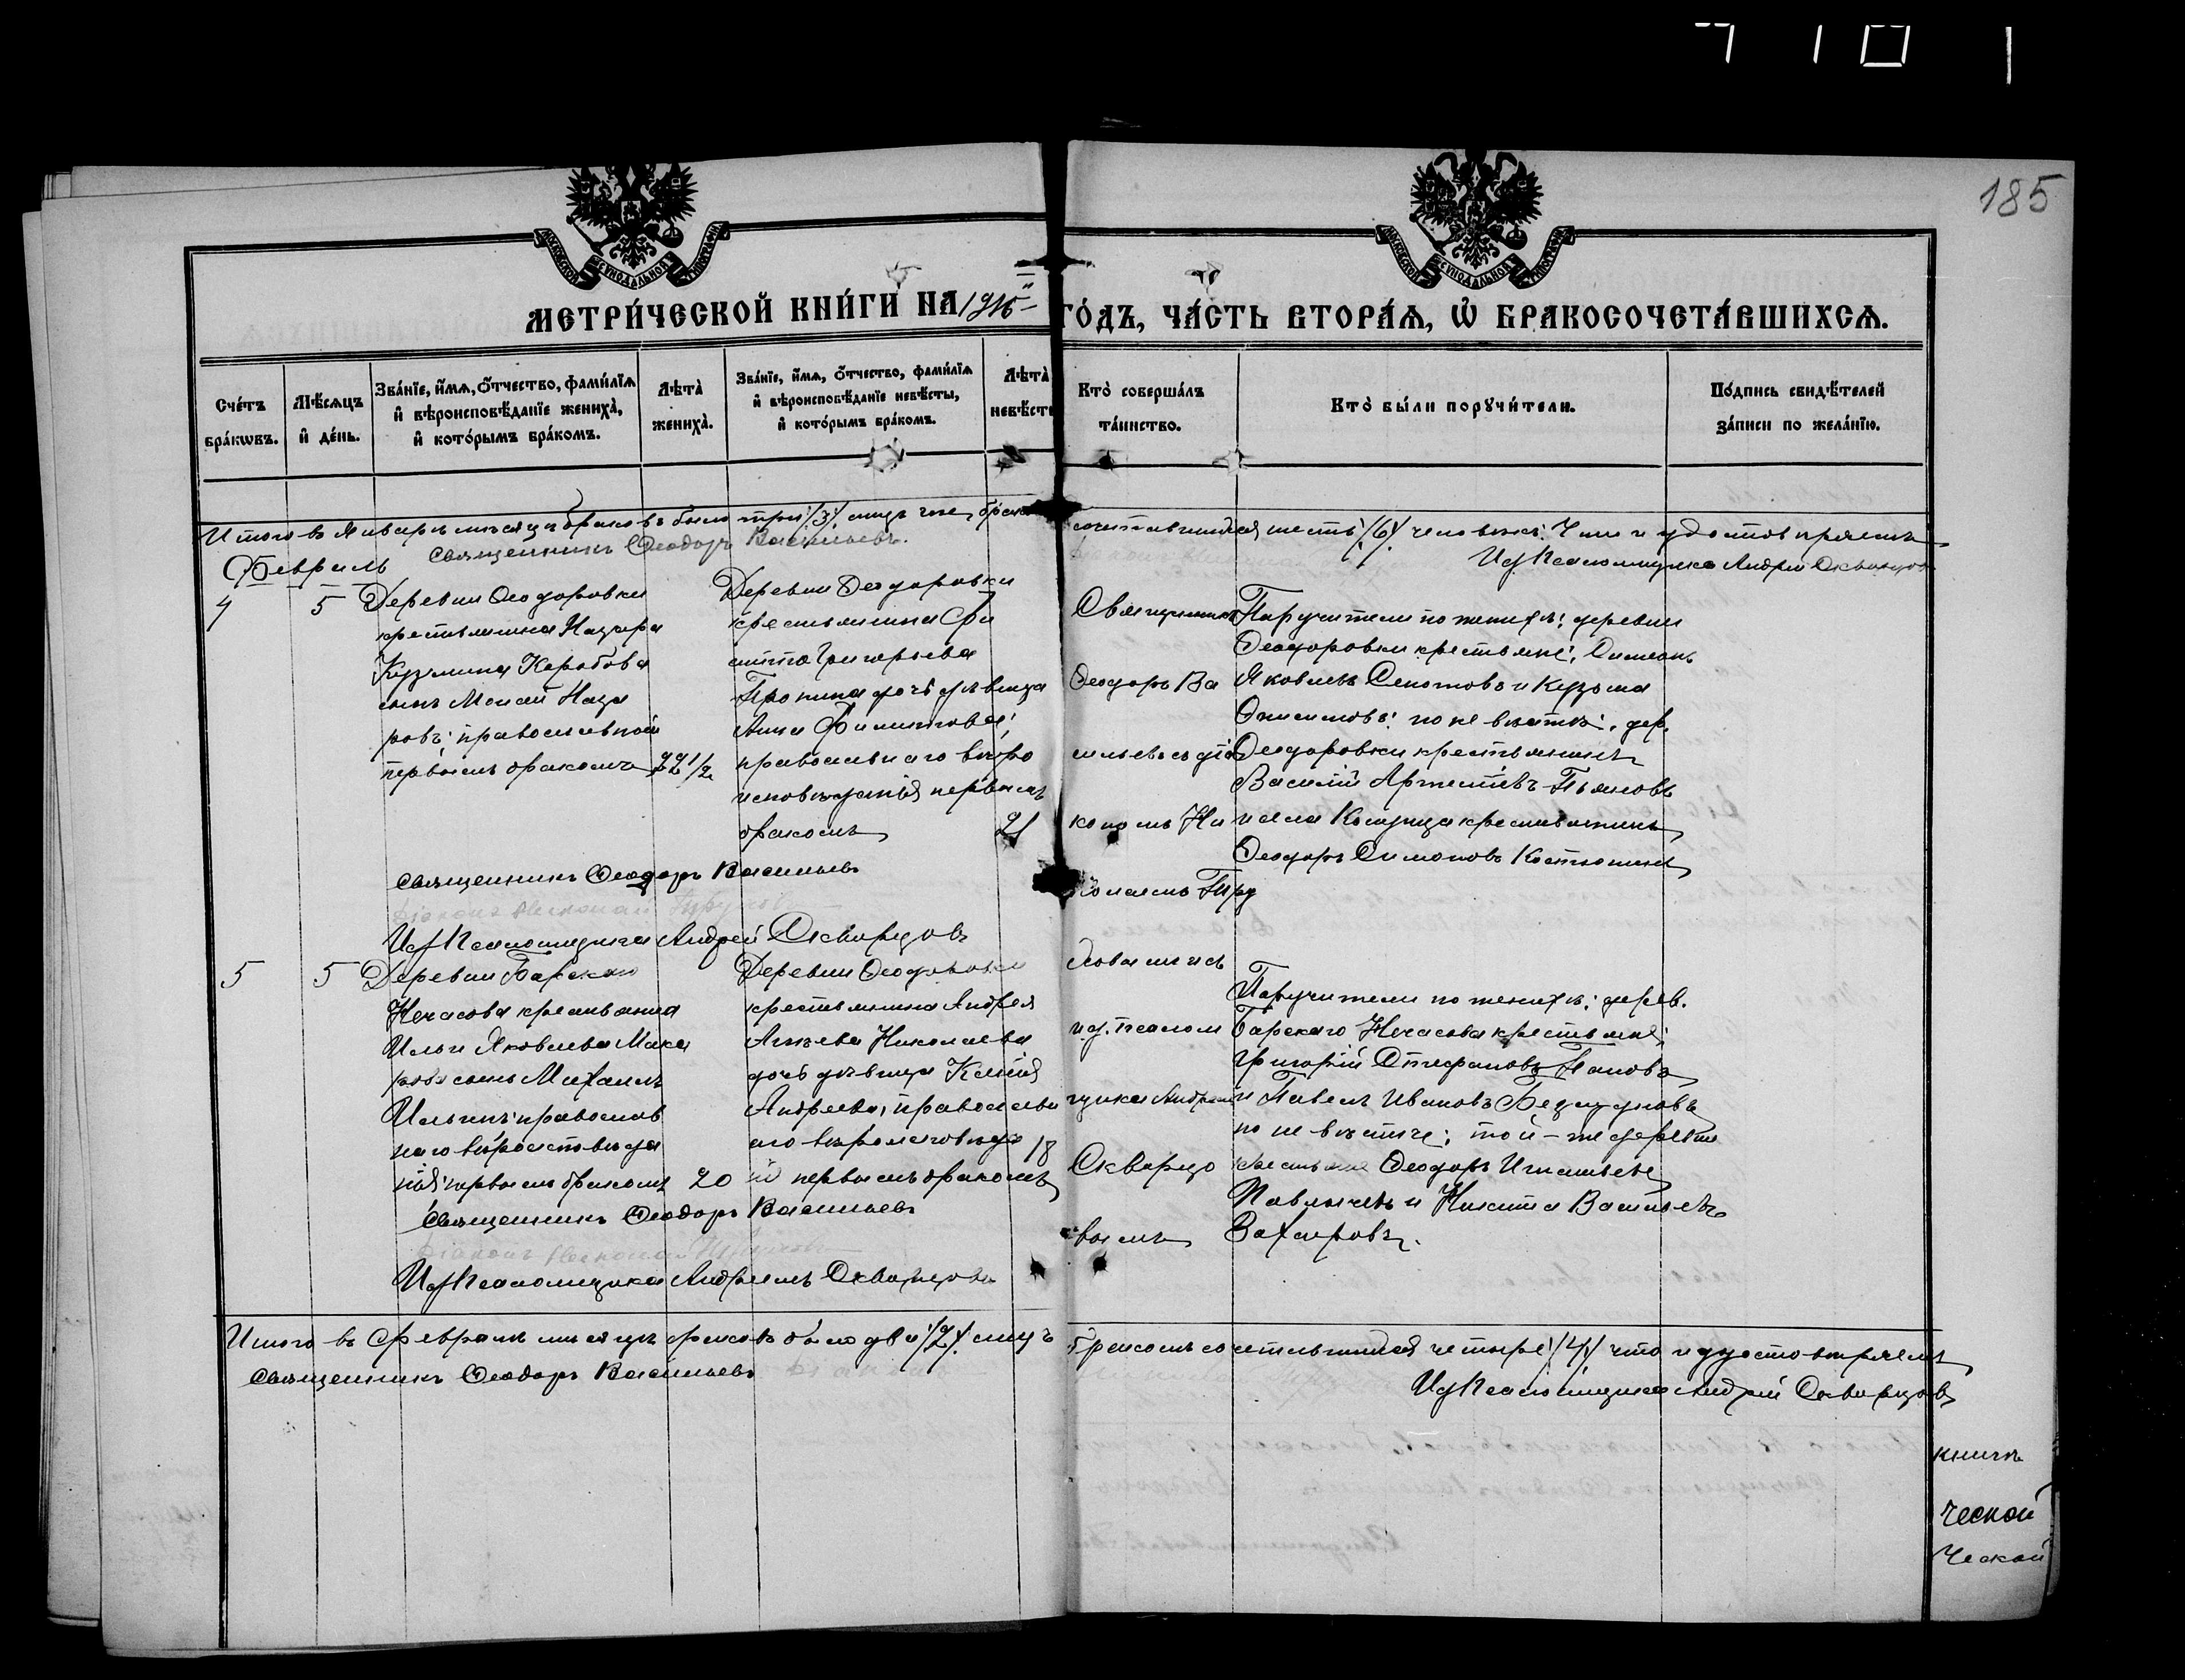 185
МОСКОВСКОЙ СѴНОДАЛЬНОЙ ТИПОГРАФІИ
МОСКОВСКОЙ СѴНОДАЛЬНОЙ ТИПОГРАФІИ
МЕТРИ́ЧЕСКОЙ КНИ́ГИ НА 1916 ГО́ДЪ, ЧА́СТЬ ВТОРА́Ѧ, Ѡ БРАКОСОЧЕТА́ВШИХСѦ.
Сче́тъ бра́кѡвъ.
Мѣ́сѧцъ и де́нь.
Зва́нїе, и́мѧ, о́тчество, фами́лїѧ и вѣроисповѣ́данїе жениха̀, и кото́рымъ бра́комъ.
Лѣта̀ жениха̀.
Зва́нїе, и́мѧ, о́тчество, фами́лїѧ и вѣроисповѣ́данїе невѣ́сты, и кото́рымъ бра́комъ.
Лѣта̀ невѣ́сты
Кто̀ соверша́лъ та́инство.
Кто̀ бы́ли порꙋчи́тели.
По́дпись свидѣ́телей за́писи по жела́нїю.
Итого въ Январѣ мѣсяцѣ браковъ было три /3/ лицъ
сочетавшихся шесть /6/ человѣкъ: Что и удостовѣряемъ
Священникъ Ѳеодоръ Васильевъ.
Ид Псаломщика Андрей Скворцовъ
Февраль
4
5
Деревни Ѳеодоровки
крестьянина Назара
Кузьмина Коробова
сынъ Моисей Наза
ровъ; православной
первымъ бракомъ
22 1/2
Деревни Ѳеодоровки
крестьянина Фи
липпа Григорьева
Пронина дочь дѣвица
Анна Филиппова;
православнаго вѣро
исповѣданія первымъ
бракомъ
21
Священникъ
Ѳеодоръ Ва
сильевъ съ діа
кономъ Ни
колаемъ Тру
и.д. псалом
щика Андреем
Скворцо
вымъ
Поручители по женихѣ: деревни
Ѳеодоровки крестьяне: Симеонъ
Яковлевъ и Кузьма
Онисимовъ: по невѣстѣ: дер.
Ѳеодоровки крестьянинъ
Василій
и села крестьянинъ
Ѳеодоръ Симоновъ Костюшинъ
Священникъ Ѳеодоръ Васильевъ
Діаконъ Николай
Ид Псаломщика Андрей Скворцовъ
5
5
Деревни Барскаго
Нечасова крестьянина
Ильи Яковлева Мака
рова сынъ Михаилъ
Ильинъ; православ
наго вѣроисповѣда
нія; первымъ бракомъ
20
Деревни Ѳеодоровки
крестьянина Андрея
Николаева
дочь дѣвица Ксенія
Андреева, православн
аго вѣроисповѣда
ні первымъ бракомъ
18
Поручители по женихѣ: дерев.
Барскаго Нечасова крестьяне:
Григорій Стефановъ Пановъ
и Павелъ Ивановъ
по невѣстѣ: той-же деревни
крестьяне Ѳеодоръ Игнатьевъ
и Никита Васильевъ
Захаровъ.
Священникъ Ѳеодоръ Васильевъ
Діаконъ Николай
Ид Псаломщика Андреемъ Скворцовъ
Итого въ Февралѣ мѣсяцѣ браковъ было два /2/ лицъ
бракомъ сочетавшихся четыре /4/ что и удостовѣряемъ
Священникъ Ѳеодоръ Васильевъ
Ид Псаломщика Андрей Скворцовъ
книгѣ
ческой
ческой